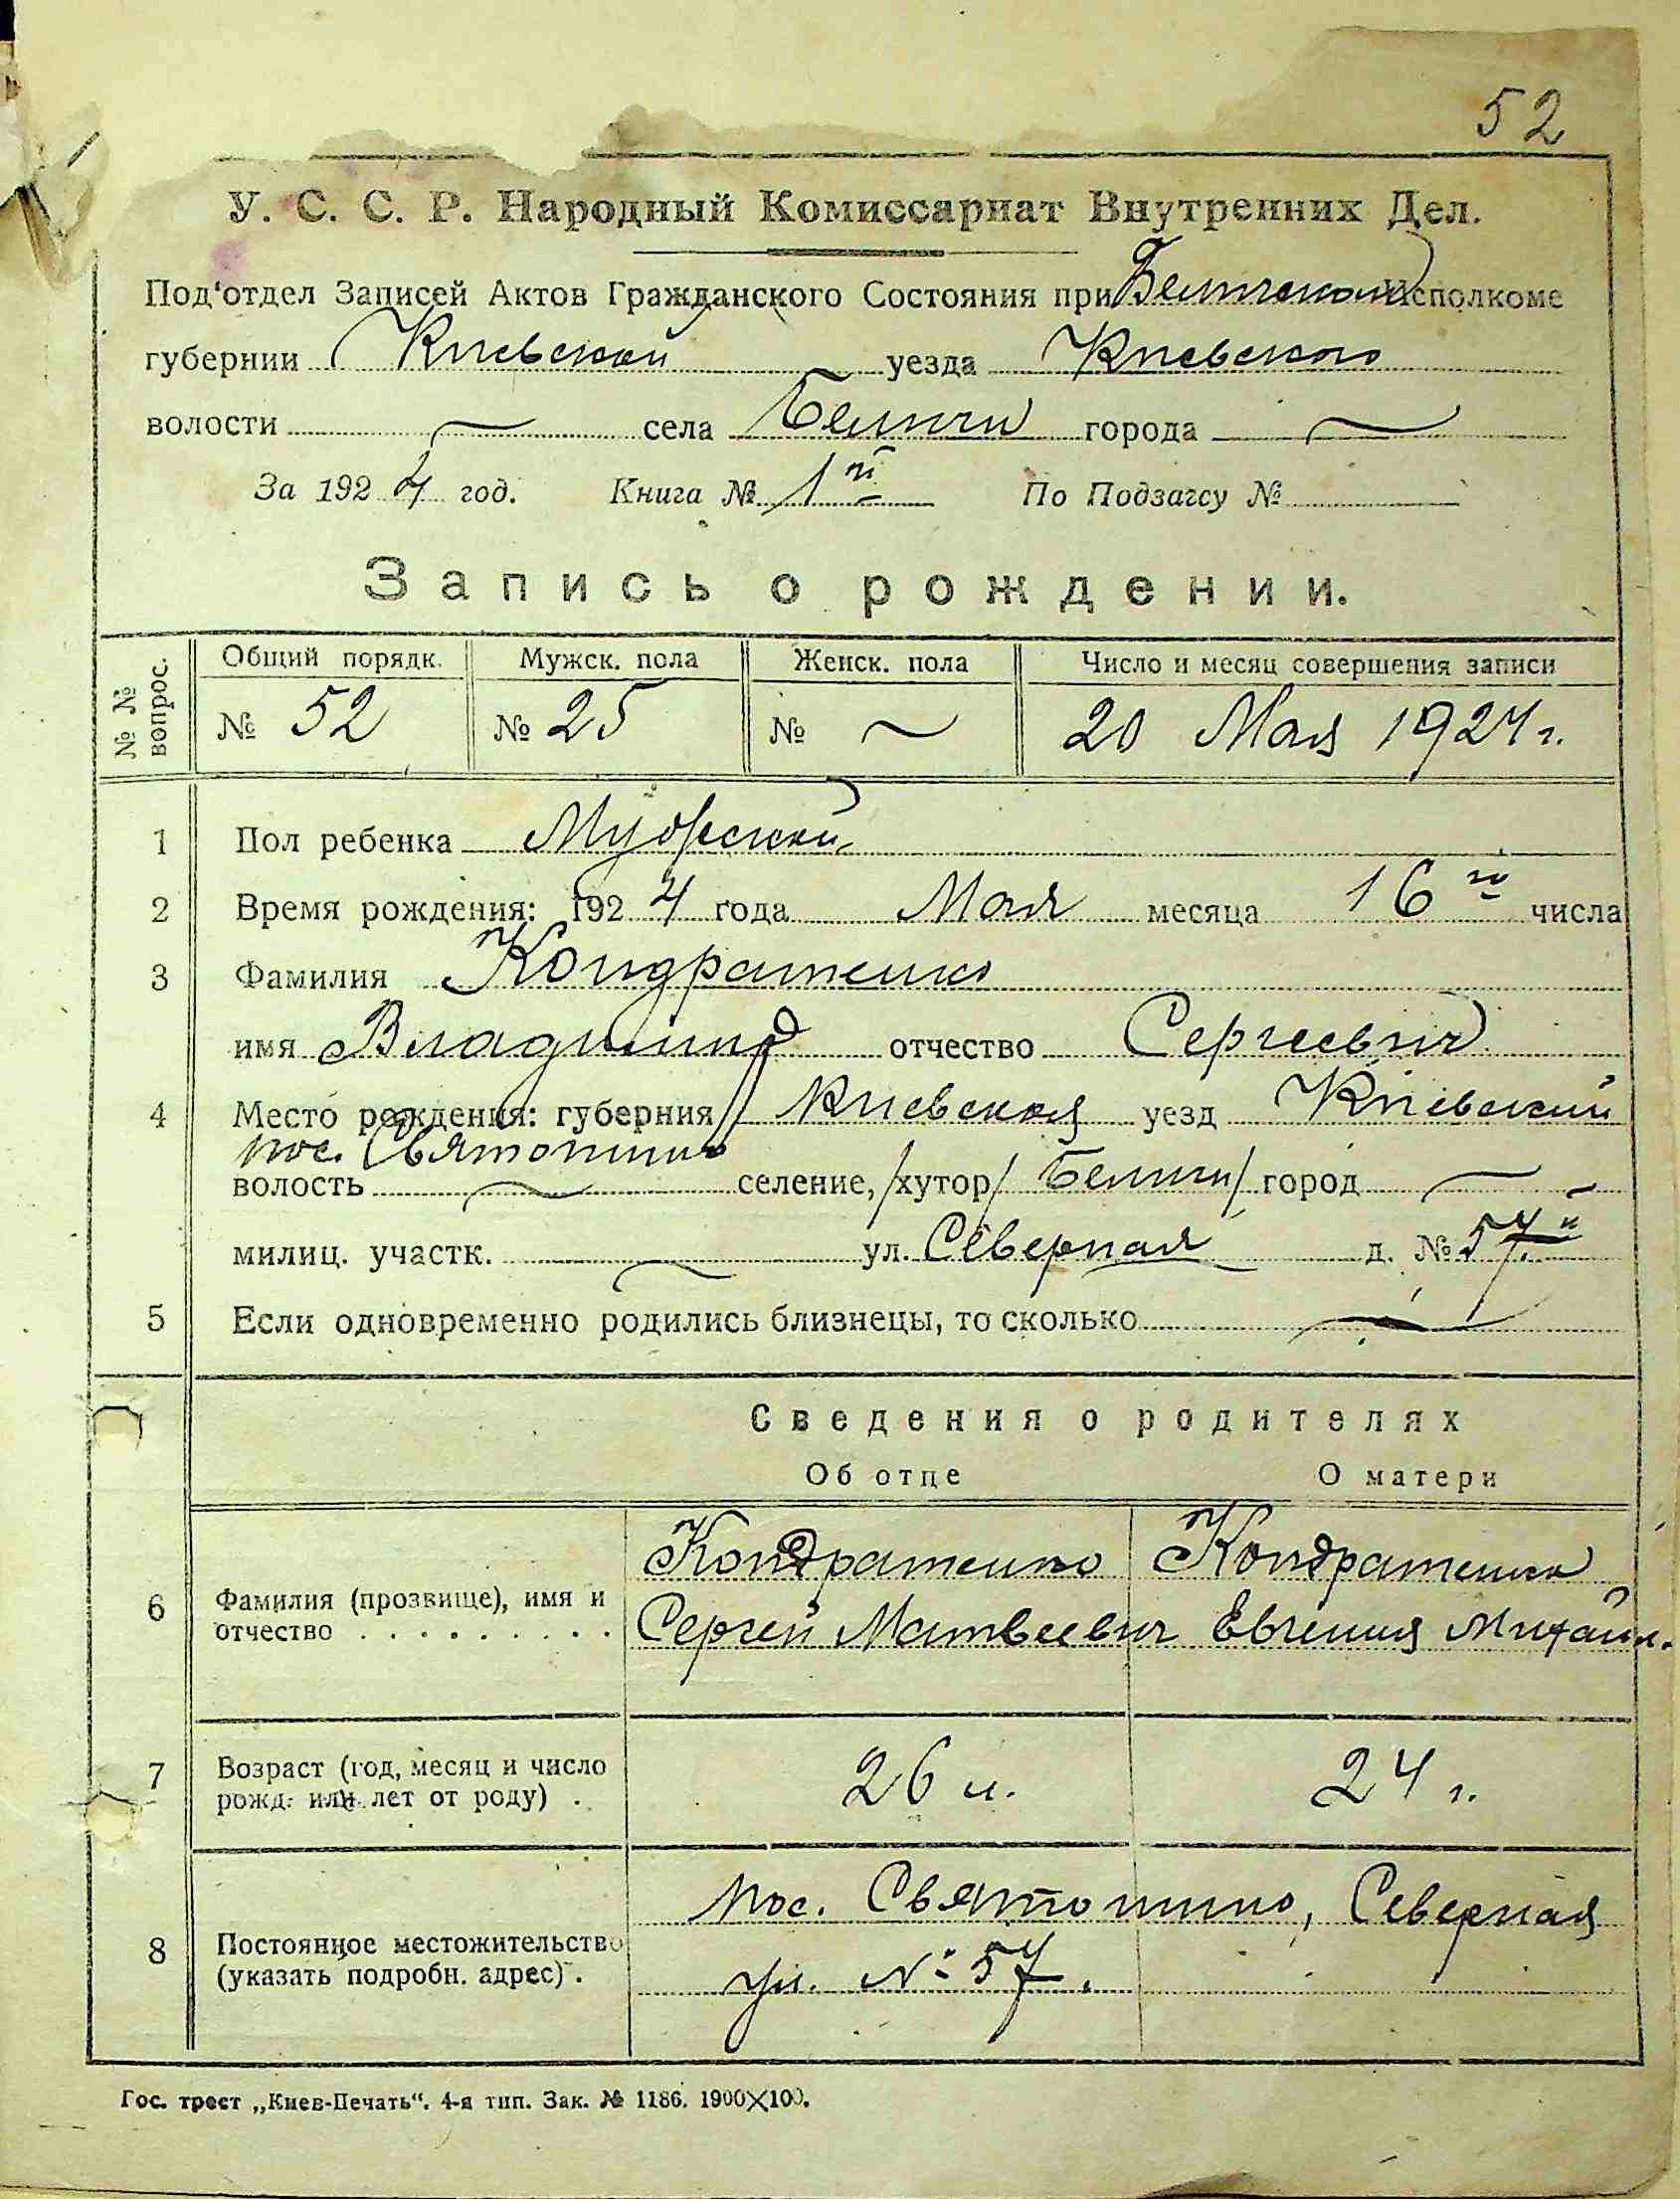 52
У. С. С. Р. Народный Комиссариат Внутренних Дел.
Под'отдел Записей Актов Гражданского Состояния при Беличском Исполкоме
губернии Киевской уезда Киевского
волости — села Беличи города —
За 1924 год. Книга № 1й По Подзагсу №
Запись о рождении.
№ № вопрос. Общий порядк. Мужск. пола Женск. пола Число и месяц совершения записи
№ 52 № 25 № — 20 Мая 1924 г.
1 Пол ребенка Мужской
2 Время рождения: 1924 года Мая месяца 16го числа
3 Фамилия Кондратенко
имя Владимир отчество Сергеевич
4 Место рождения: губерния Киевская уезд Киевский
пос. Святошино
волость — селение, /хутор/ Беличи/ город —
милиц. участк. — ул. Северная д. № 57
5 Если одновременно родились близнецы, то сколько —
Сведения о родителях
Об отце О матери
Кондратенко Кондратенко
6 Фамилия (прозвище), имя и
отчество . . . . . . . . . Сергей Матвеевич Евгения Михайл.
7 Возраст (год, месяц и число
рожд. или лет от роду) . 26 л. 24 г.
пос. Святошино, Северная
8 Постоянное местожительство
(указать подробн. адрес) . ул. № 57.
Гос. трест „Киев-Печать“. 4-я тип. Зак. № 1186. 1900×100.